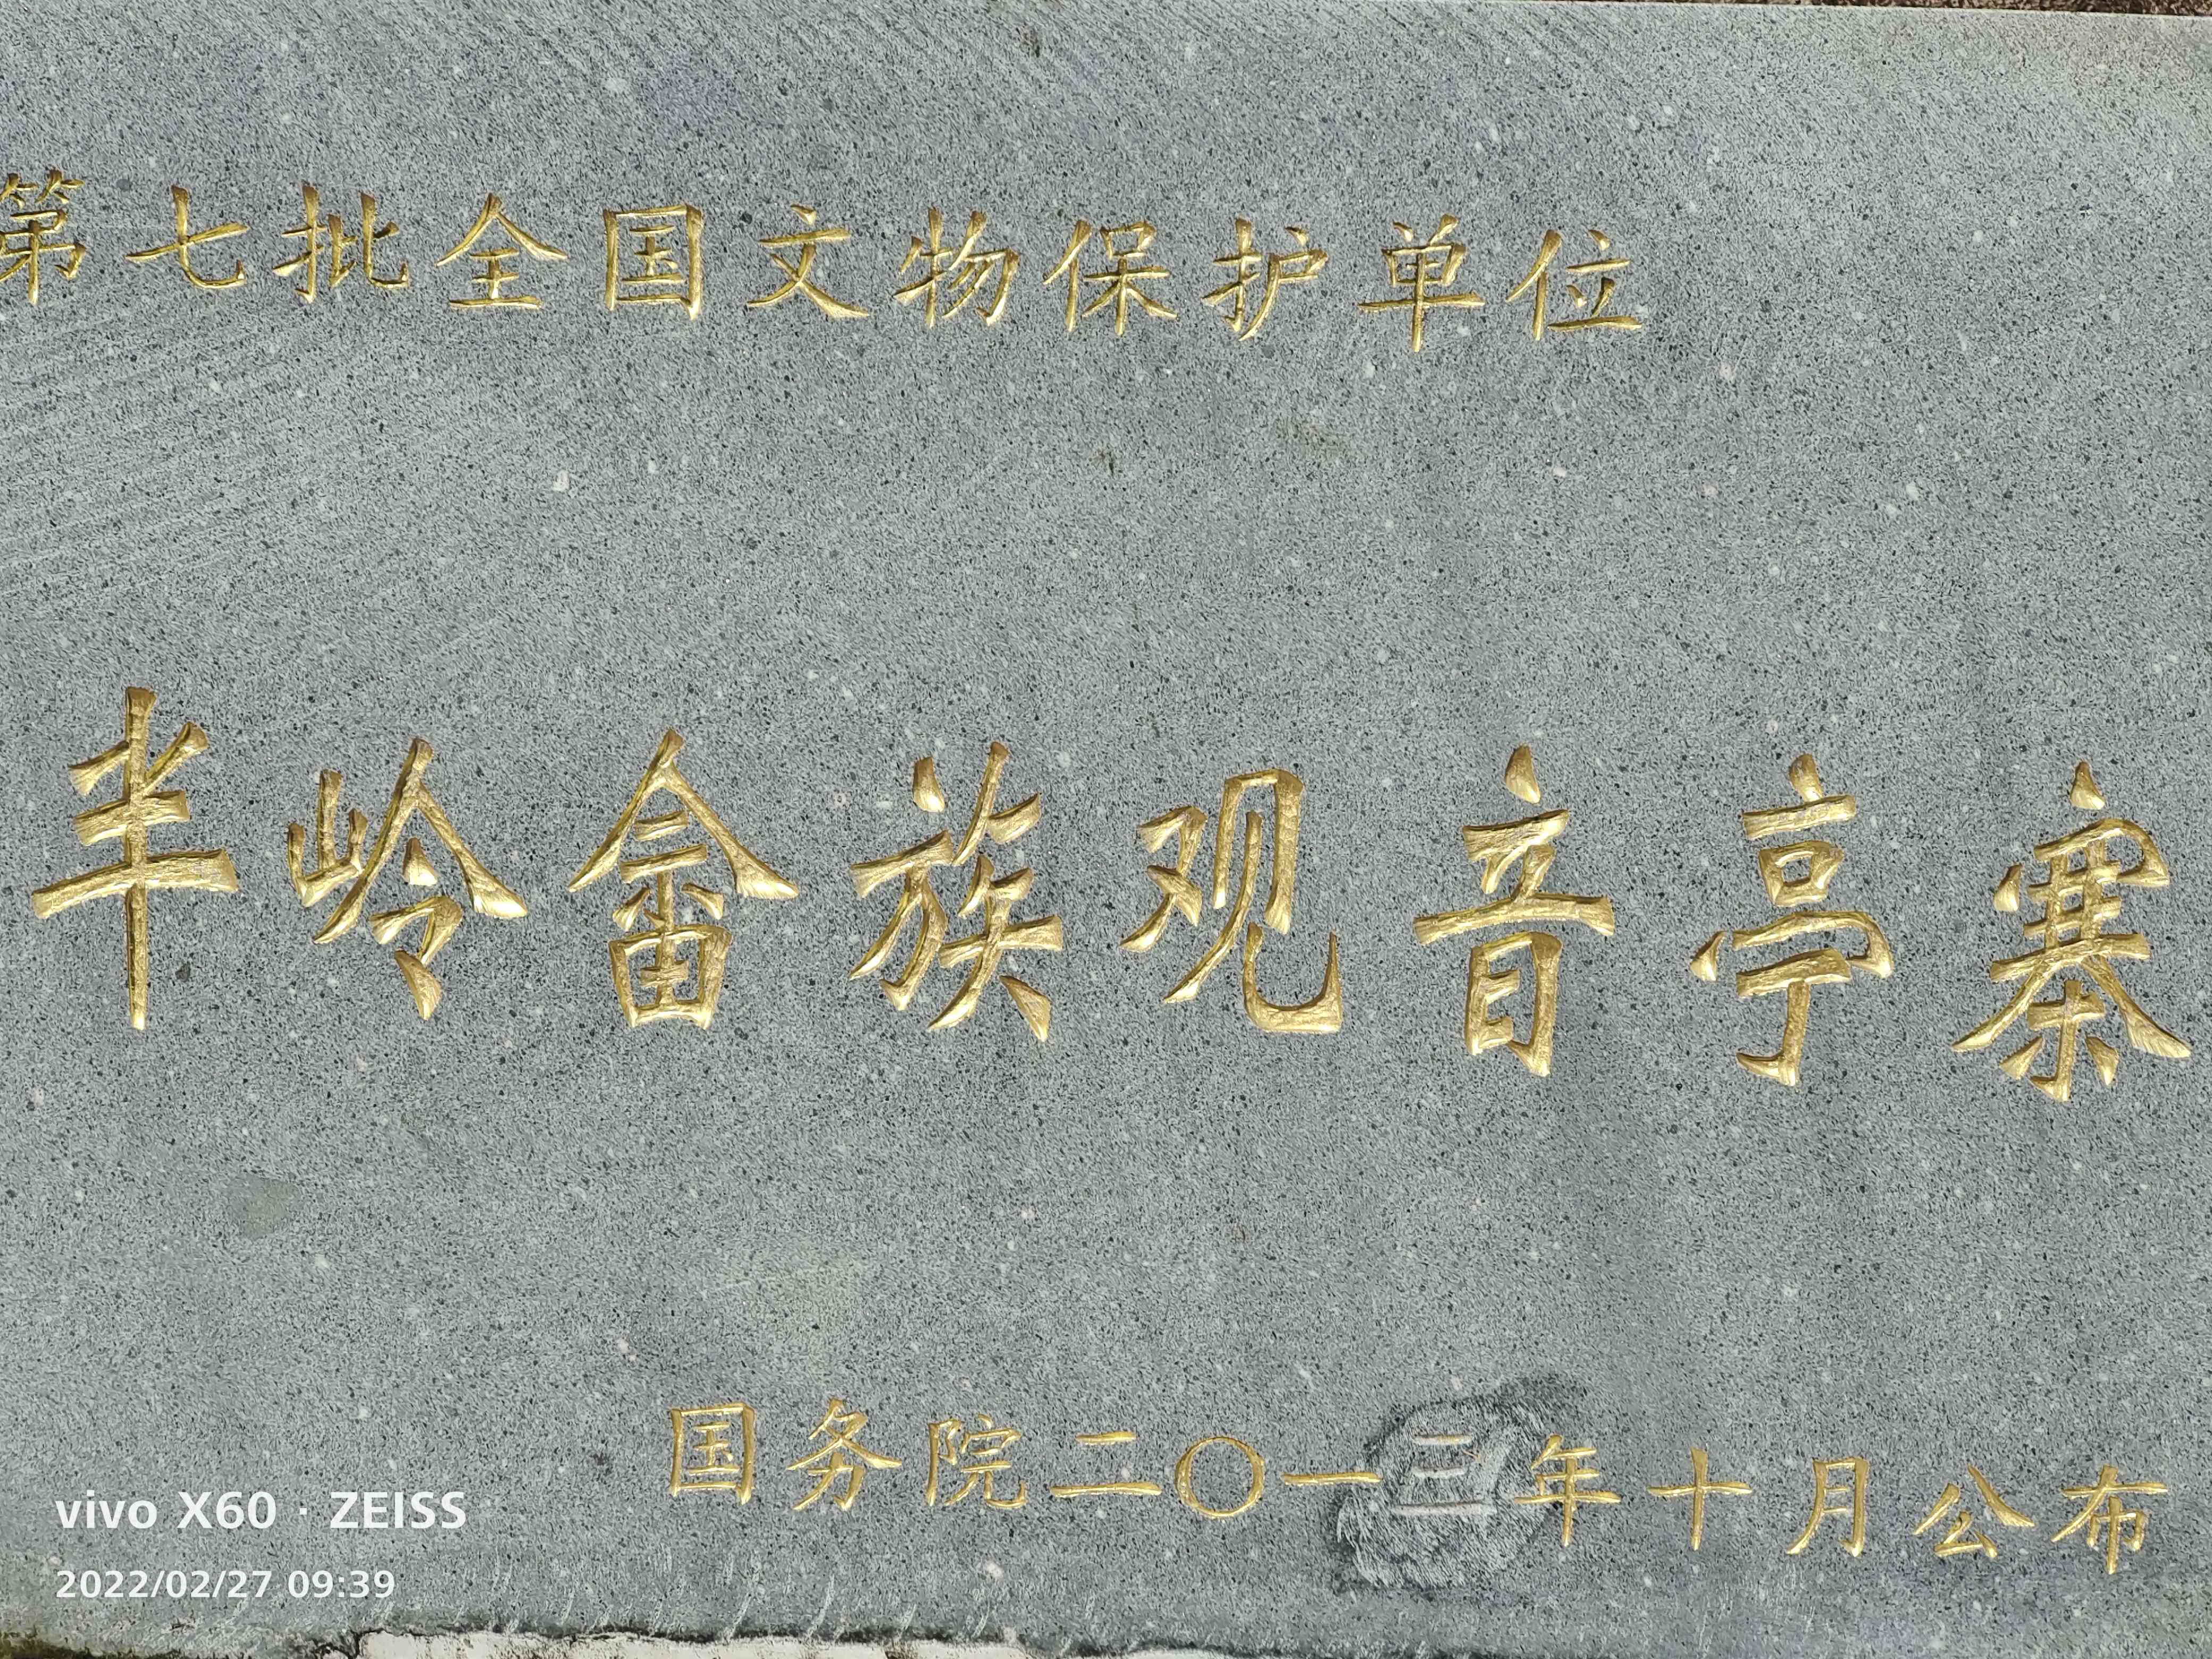 第七批全国文物保护单位
半岭畲族观音亭寨
国务院二〇一三年十月公布
vivo X60 · ZEISS
2022/02/27 09:39